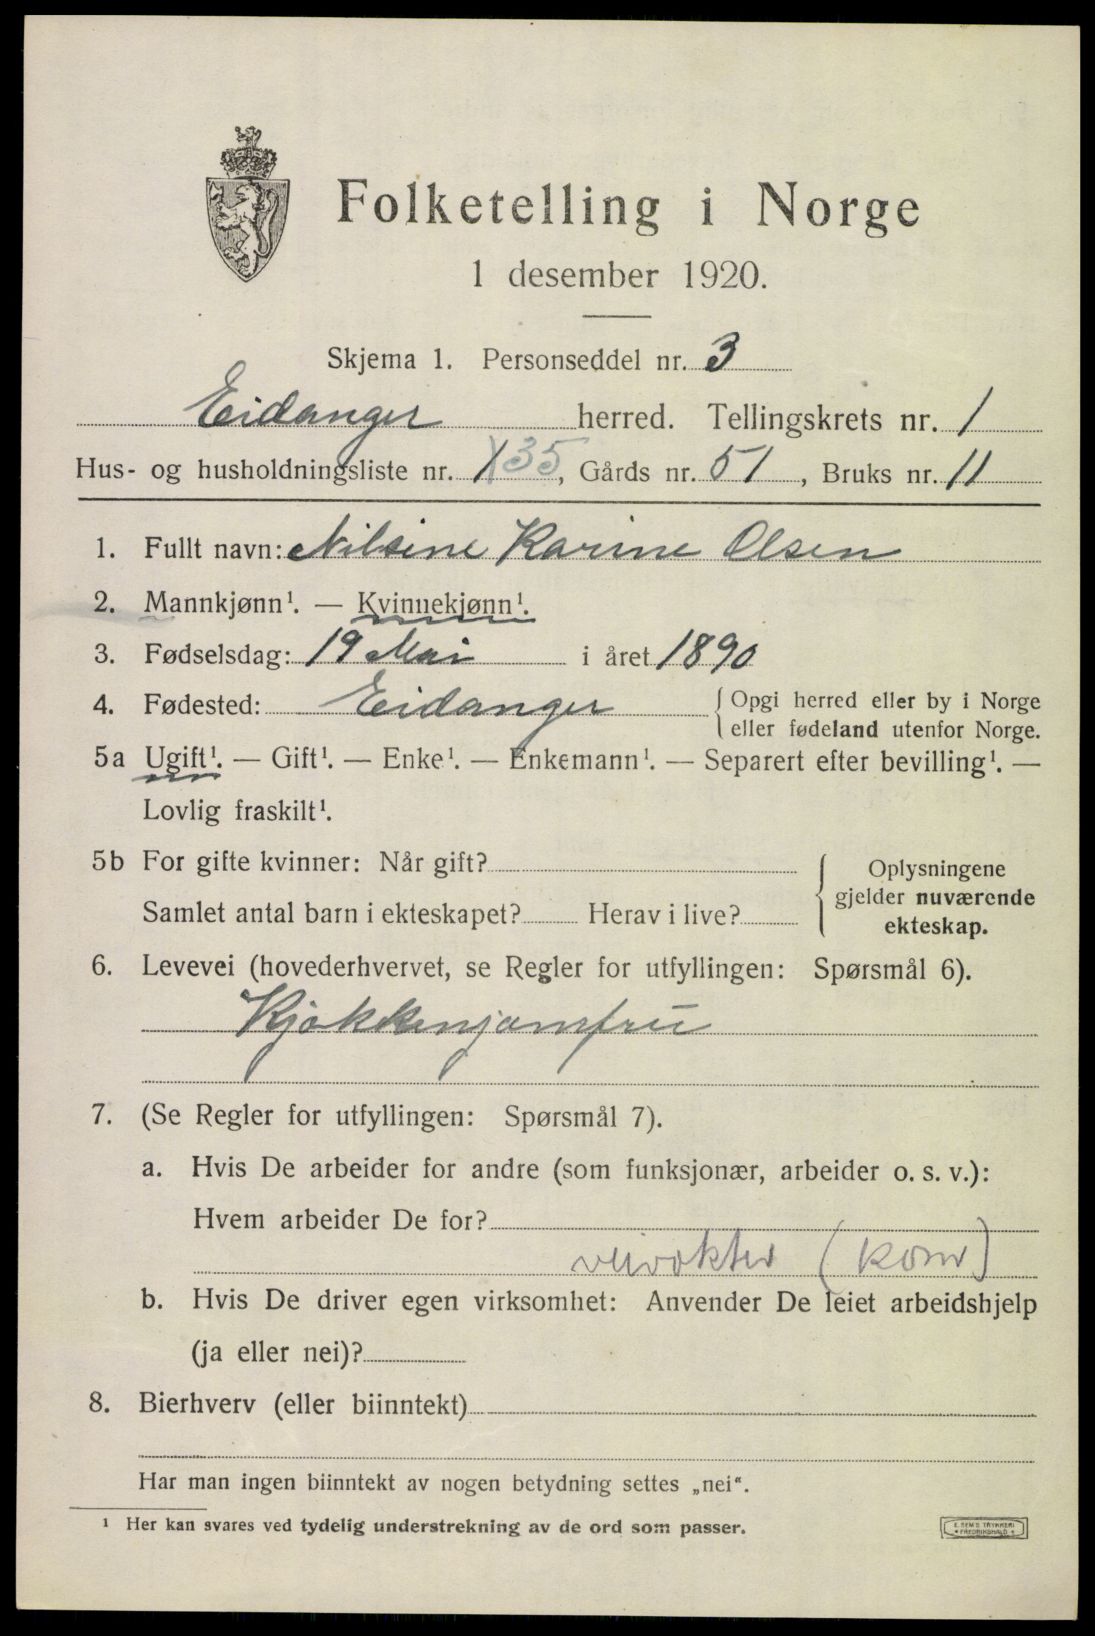 Folketelling i Norge
1 desember 1920.
Skjema 1. Personseddel nr. 3
Eidanger herred. Tellingskrets nr. 1
Hus- og husholdningsliste nr. 1 35, Gårds nr. 51, Bruks nr. 11
1. Fullt navn: Nilsine Karine Olsen
2. Mannkjønn¹. — Kvinnekjønn¹.
3. Fødselsdag: 19 Mai i året 1890
4. Fødested: Eidanger { Opgi herred eller by i Norge
eller fødeland utenfor Norge.
5a Ugift¹. — Gift¹. — Enke¹. — Enkemann¹. — Separert efter bevilling¹. —
Lovlig fraskilt¹.
5b For gifte kvinner: Når gift? { Oplysningene
gjelder nuværende
Samlet antal barn i ekteskapet? Herav i live?
ekteskap.
6. Levevei (hovederhvervet, se Regler for utfyllingen: Spørsmål 6).
Kjøkkenjomfru
7. (Se Regler for utfyllingen: Spørsmål 7).
a. Hvis De arbeider for andre (som funksjonær, arbeider o. s. v.):
Hvem arbeider De for?
veivokter (kom)
b. Hvis De driver egen virksomhet: Anvender De leiet arbeidshjelp
(ja eller nei)?
8. Bierhverv (eller biinntekt)
Har man ingen biinntekt av nogen betydning settes „nei“.
¹ Her kan svares ved tydelig understrekning av de ord som passer.
E. SEMS TRYKKERI
FREDRIKSHALD